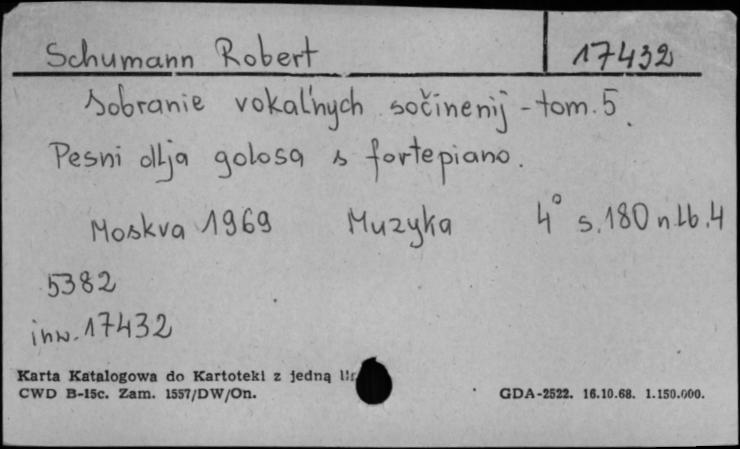 Schumann Robert 17432
Sobranie vokal'nych sočinenij - tom. 5.
Pesni dlja golosa s fortepiano.
Moskva 1969 Muzyka 4° s. 180 nlb. 4
5382
inw. 17432
Karta Katalogowa do Kartoteki z jedną
CWD B-15c. Zam. 1557/DW/On. GDA-2522. 16.10.68. 1.150.000.